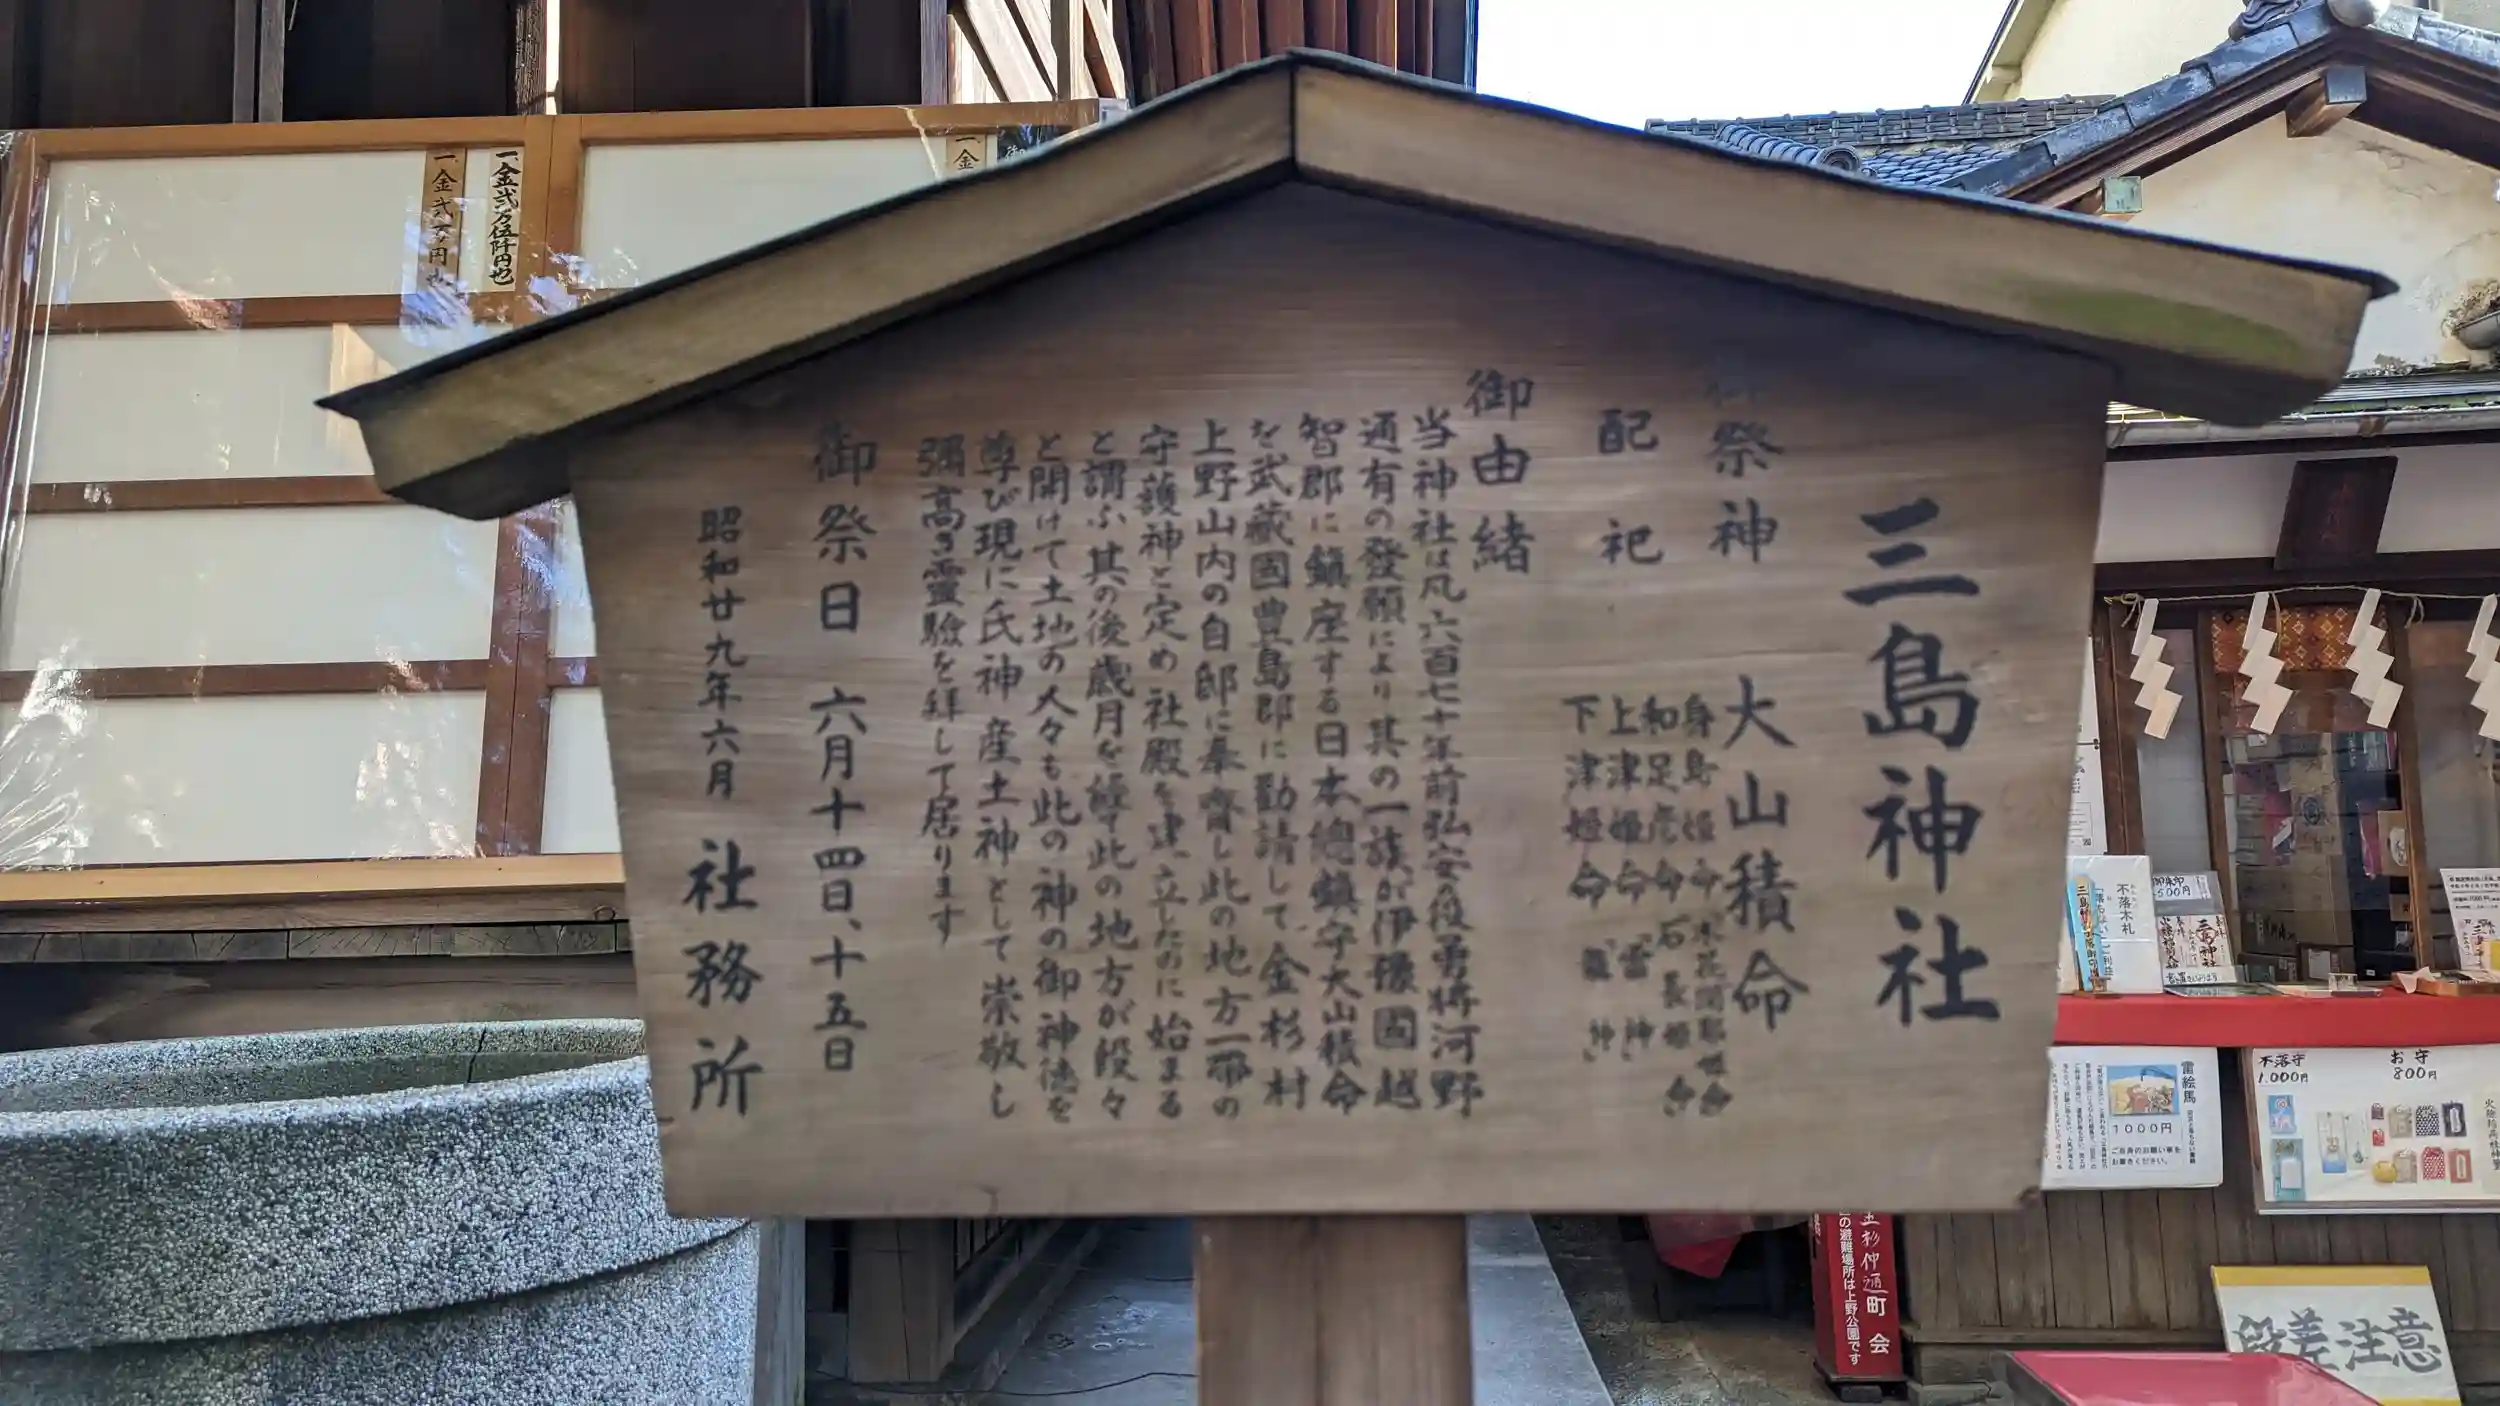 三島神社
祭神 大山積命
配祀
身島姫命
和足彦命 石長姫命
上津姫命「雷神」
下津姫命「龍神」
御由緒
当神社は凡六百七十年前弘安の役勇将河野
通有の發願により其の一族が伊豫國越
智郡に鎮座する日本總鎮守大山積命
を武藏國豊島郡に勸請して、金杉村
上野山内の自邸に奉齋し此の地方一帯の
守護神と定め社殿を建立したのに始まる
と謂ふ其の後歳月を經て此の地方が段々
と開けて土地の人々も此の神の御神徳を
尊び現に氏神産土神として崇敬し
彌高き靈驗を拜して居ります
御祭日 六月十四日、十五日
昭和廿九年六月 社務所
一金弐万円也
一金弐万伍阡円也
一金
御朱印
500円
不落木札
三島神社
不落守
1,000円
お守
800円
雷絵馬
1000円
ご自身のお願い事を
お書きください。
金杉仲通町会
の避難場所は上野公園です
段差注意